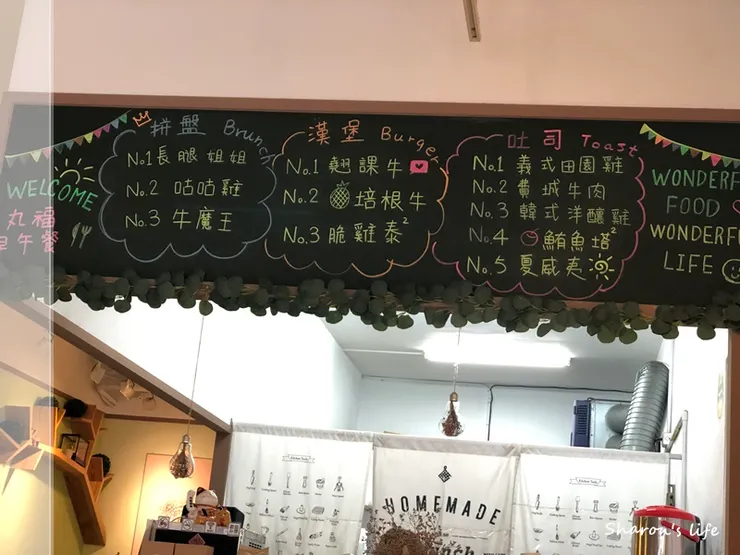 WELCOME
丸福
早午餐
拼盤 Brunch
No.1 長腿姐姐
No.2 咕咕雞
No.3 牛魔王
漢堡 Burger
No.1 翹課牛
No.2 培根牛
No.3 脆雞泰²
吐司 Toast
No.1 義式田園雞
No.2 費城牛肉
No.3 韓式洋釀雞
No.4 鮪魚塔²
No.5 夏威夷
WONDERF
FOOD
WONDERFU
LIFE
HOMEMADE
Sharon's life